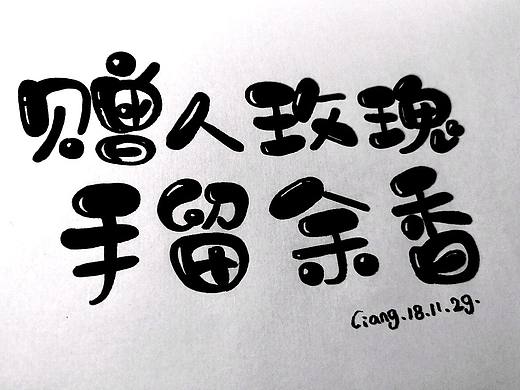 赠人玫瑰
手留余香
Ciang.18.11.29.